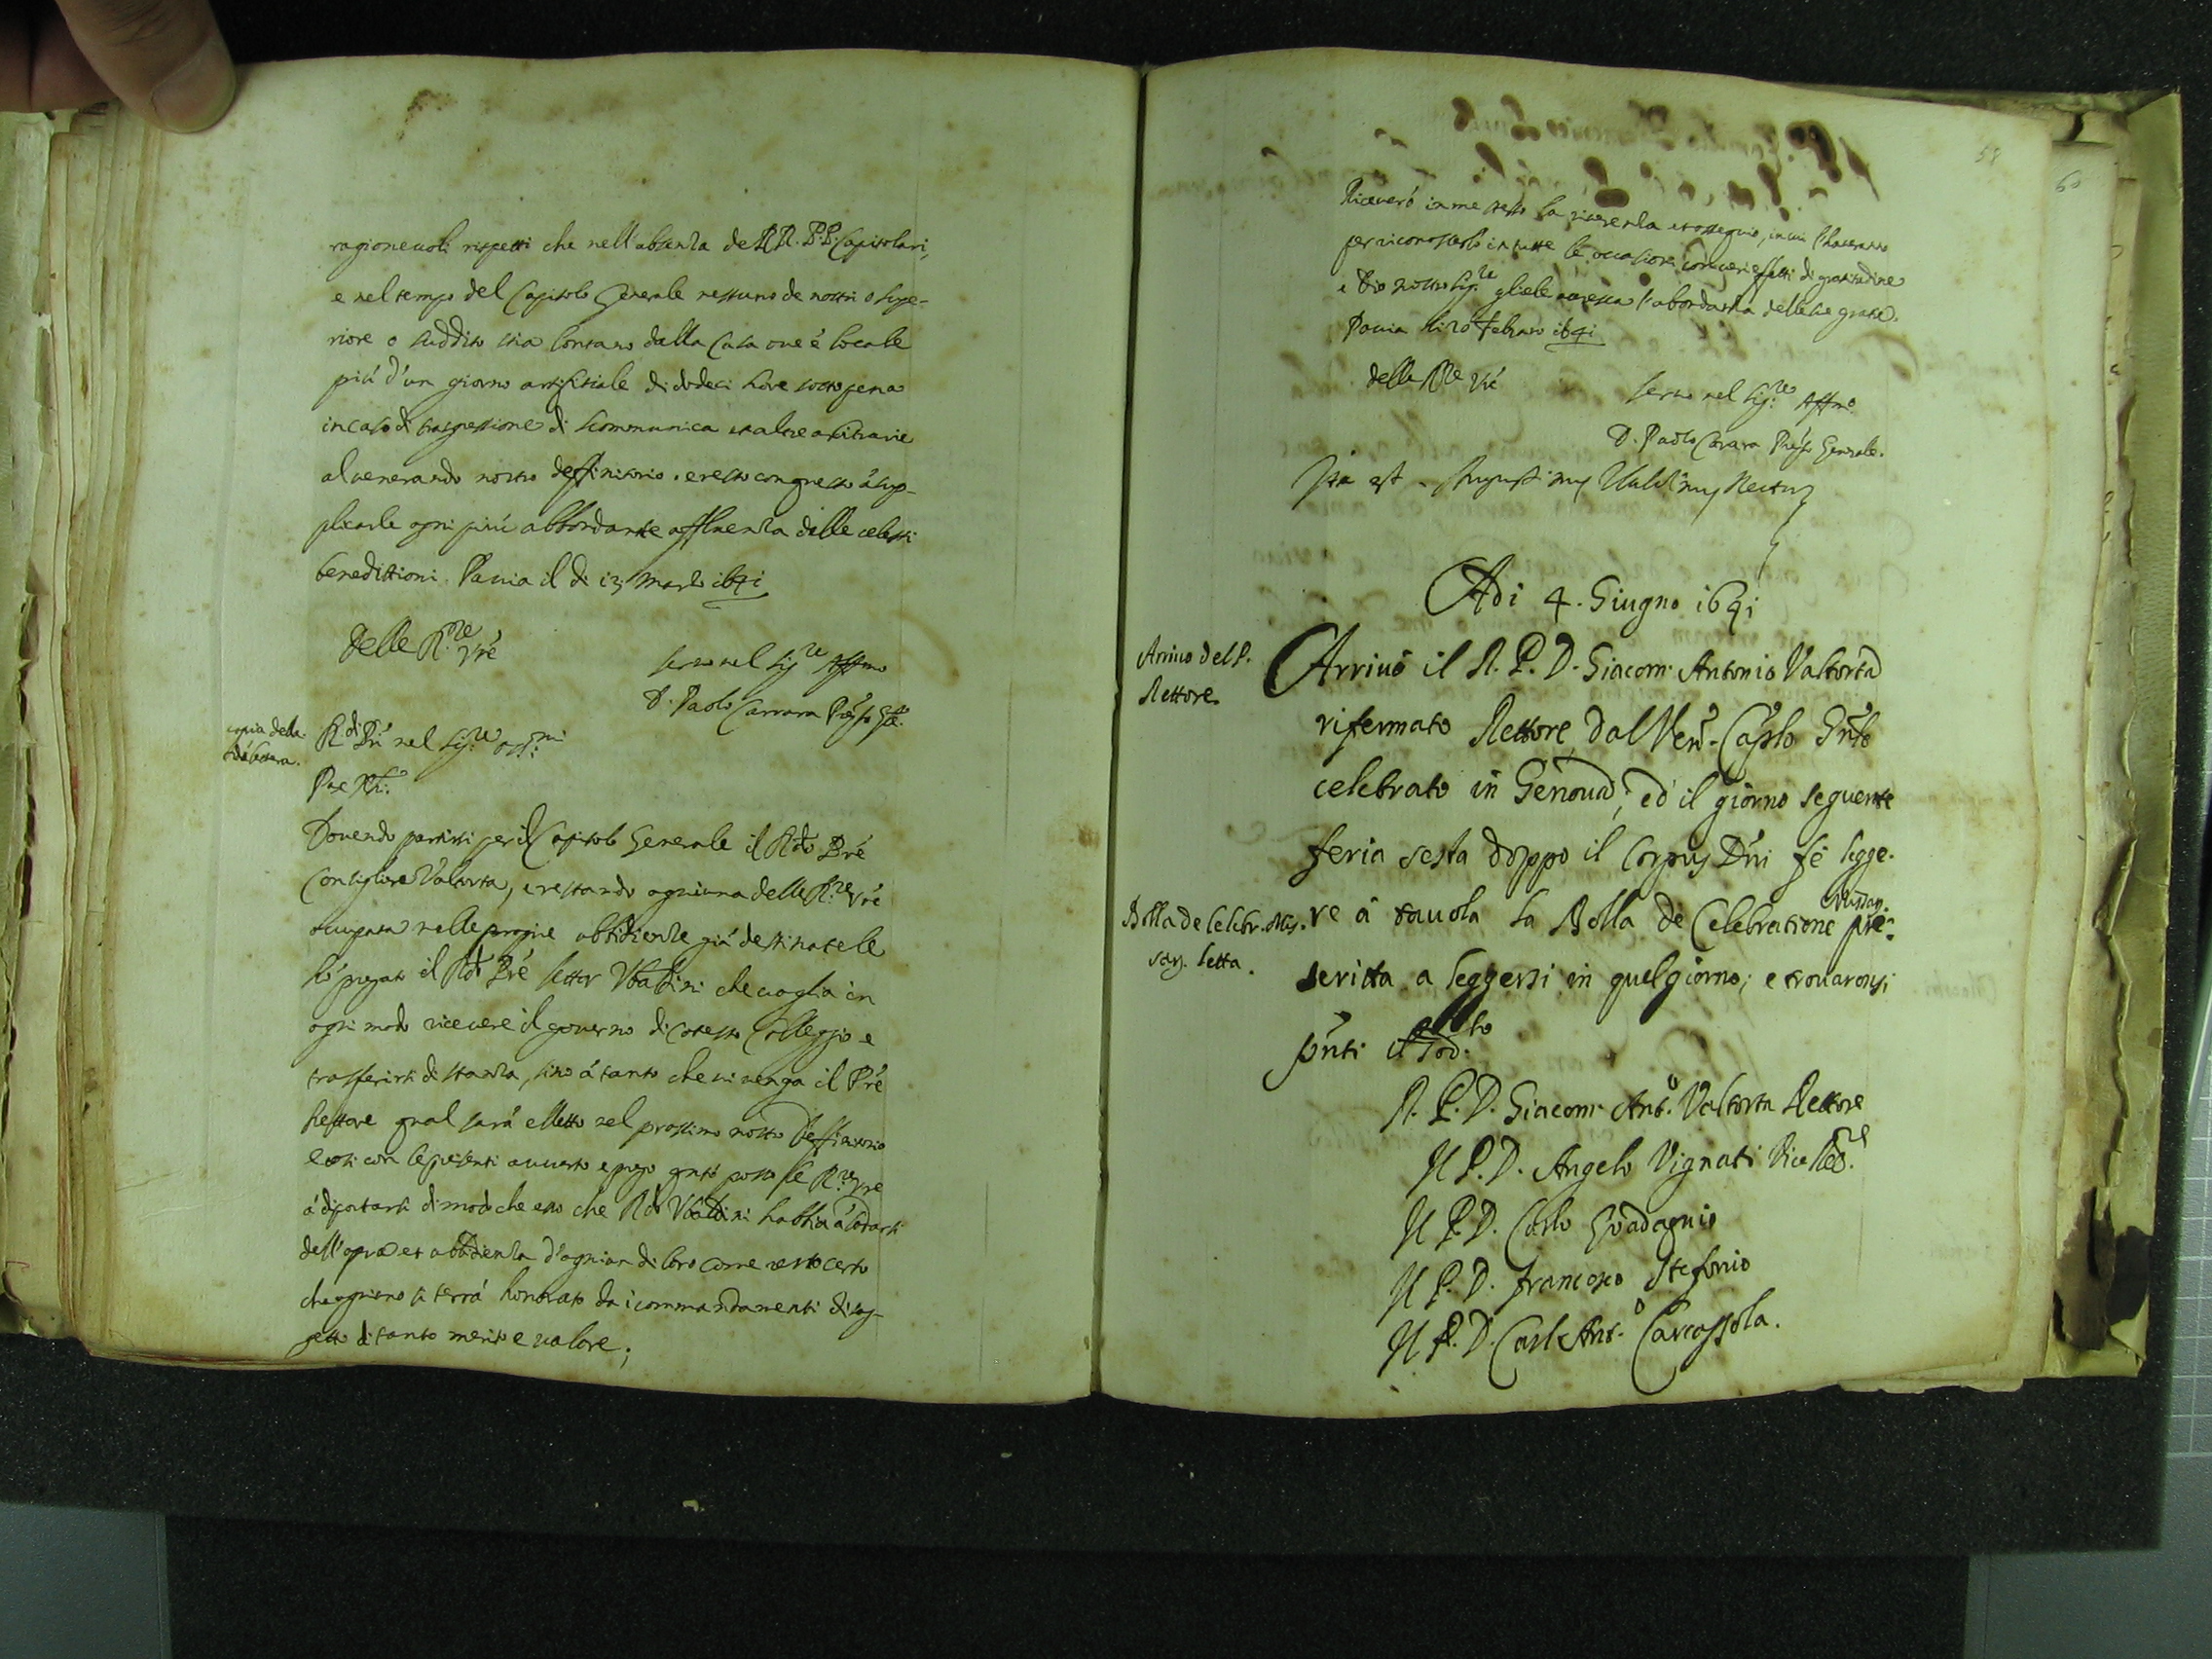 ragioneuoli rispetti che nell'absenza de RR. P.P. Capitolari,
e nel tempo del Capitolo Generale nessuno de nostri o supe-
riore o suddito stia lontano dalla Casa oue è locale
più d'un giorno artificiale di dodeci hore sotto pena
in caso di trasgressione di scommunica et altre arbitrarie
al uenerando nostro deffinitorio. e resto con questo à sup-
plicarle ogni più abbondante affluenza delle celesti
benedittioni. Pauia il dì 13 Marzo 1691
Delle R.re Vre
seruo nel Sig.re Affmo
D. Paolo Carrara Prep.to Gnle.
copia della
lettera.
R.di Pri nel Sig.re oss.mi
Pax Xti.
Douendo partirsi per il Capitolo Generale il Rdo Pre
Consigliere Valtorta, e restando ogniuna delle R.re Vre
occupata nelle proprie obbidienze già destinatele
hò pregato il Rdo Pre lettor Vbaldini che uoglia in
ogni modo riceuere il gouerno di cotesto Colleggio e
trasferirsi di stanza, sino à tanto che ui uenga il Pre
Rettore qual sarà elletto nel prossimo nostro Deffinitorio
e così con le presenti auuerto e prego le R.re Vre
à diportarsi di modo che esso che Rdo Vbaldini habbia à lodarsi
dell'opra et obbidienza d'ogniun di loro come resto certo
che ogniuno si terrà honorato da i commandamenti di sog-
getto di tanto merito e ualore;
58
60
Riceuerò in me stesso la riuerenza et ossequio, in cui l'haueranno
per riconoscerlo in tutte le occasioni con ueri effetti di gratitudine
e Dio nostro Sig.re gliele accresca l'abondanza delle sue gratie.
Pauia li 20 Febraro 1691
delle RRe Vre
seruo nel Sig.re Affmo.
D. Paolo Carara Prep.to Generale.
Ita est. Augustinus Ubaldinus Rector
Adi 4. Giugno 1691
Arriuo del P.
Rettore.
Arriuò il R. P. D. Giacom Antonio Valtorta
rifermato Rettore dal Ven. Caplo Gnle
celebrato in Genoua; ed il giorno seguente
feria sesta doppo il Corpus Dni fè legge-
Bolla de Celebr. Mis-
sar. letta.
re à tauola la Bolla de Celebratione Missar. pre-
scritta a leggersi in quel giorno; e trouaronsi
pnti il sod.to
R. P. D. Giacom Ant.o Valtorta Rettore
Il P. D. Angelo Vignati Vice Rett.re
Il P. D. Carlo Guadagnio
Il P. D. Francesco Stefonio
Il P. D. Carl Ant.o Carcassola.